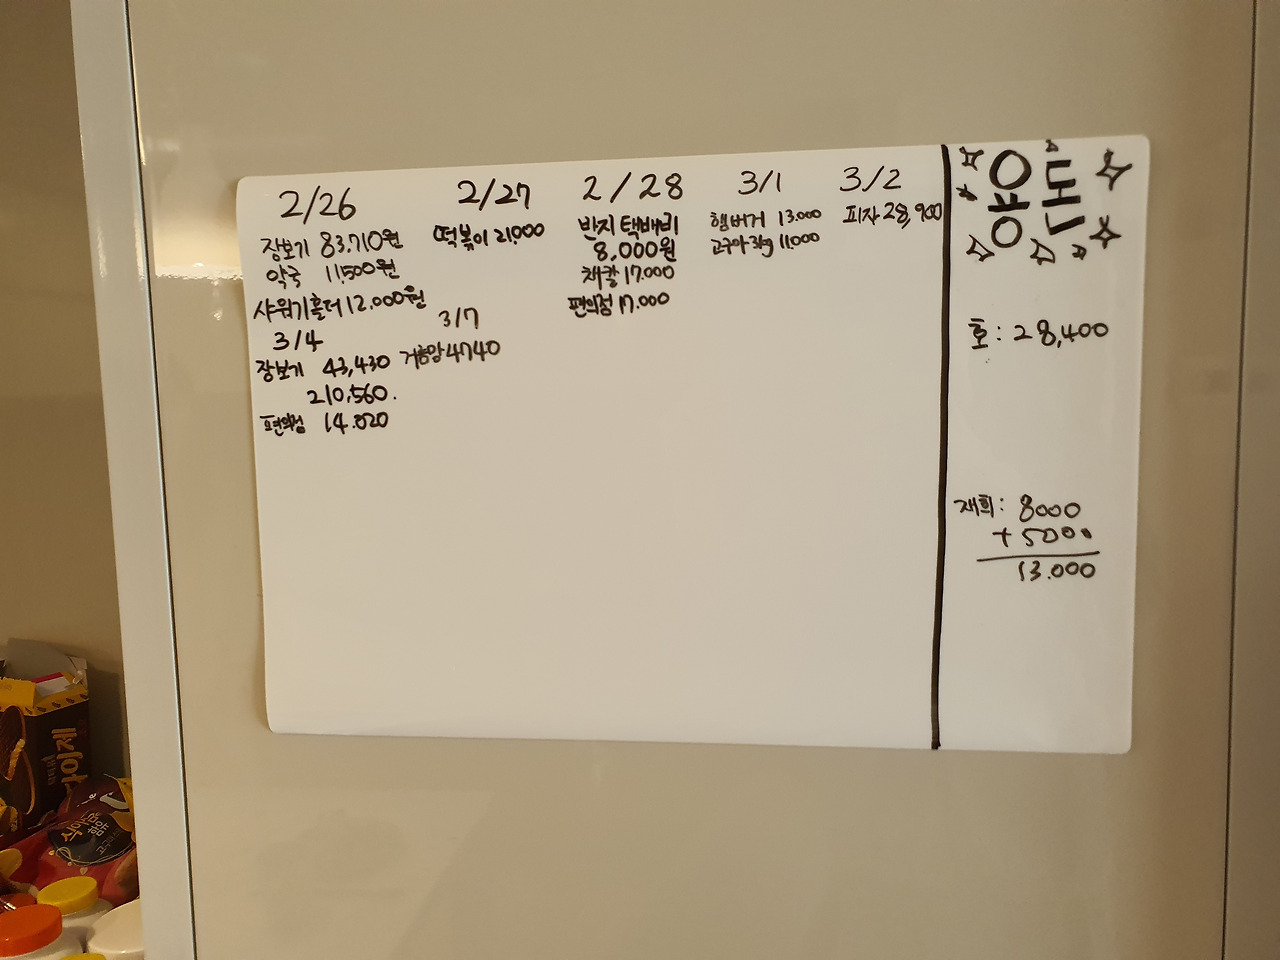 2/26
장보기 83,710원
약국 11,500원
샤워기홀더 12,000원
2/27
떡볶이 21,000
2/28
반지 택배비
8,000원
채칼 17.000
편의점 17.000
3/1
햄버거 13.000
고구마 3kg 11,000
3/2
피자 28,900
3/4
장보기 43,430
210,560.
편의점 14.020
3/7
거름망 4740
용돈
호: 28,400
재희: 8000
+ 5000
13.000